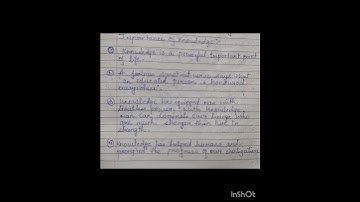 Importance of Knowledge
① Knowledge is a powerful important part
of life.
② A famous Sanskrit verse says that
an educated person is honoured
everywhere.
③ Knowledge has equipped man with
limitless power, with knowledge,
man can dominate over beings who
are much stronger than him in
strength.
④ Knowledge has helped humans and
prompted the progress of our civilization
InShOt